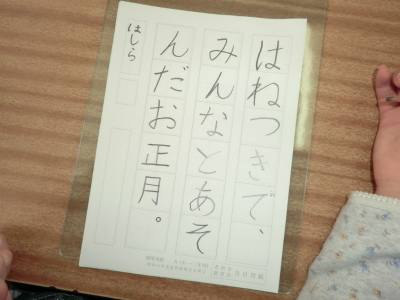 はねつきで、
みんなとあそ
んだお正月。
はしら